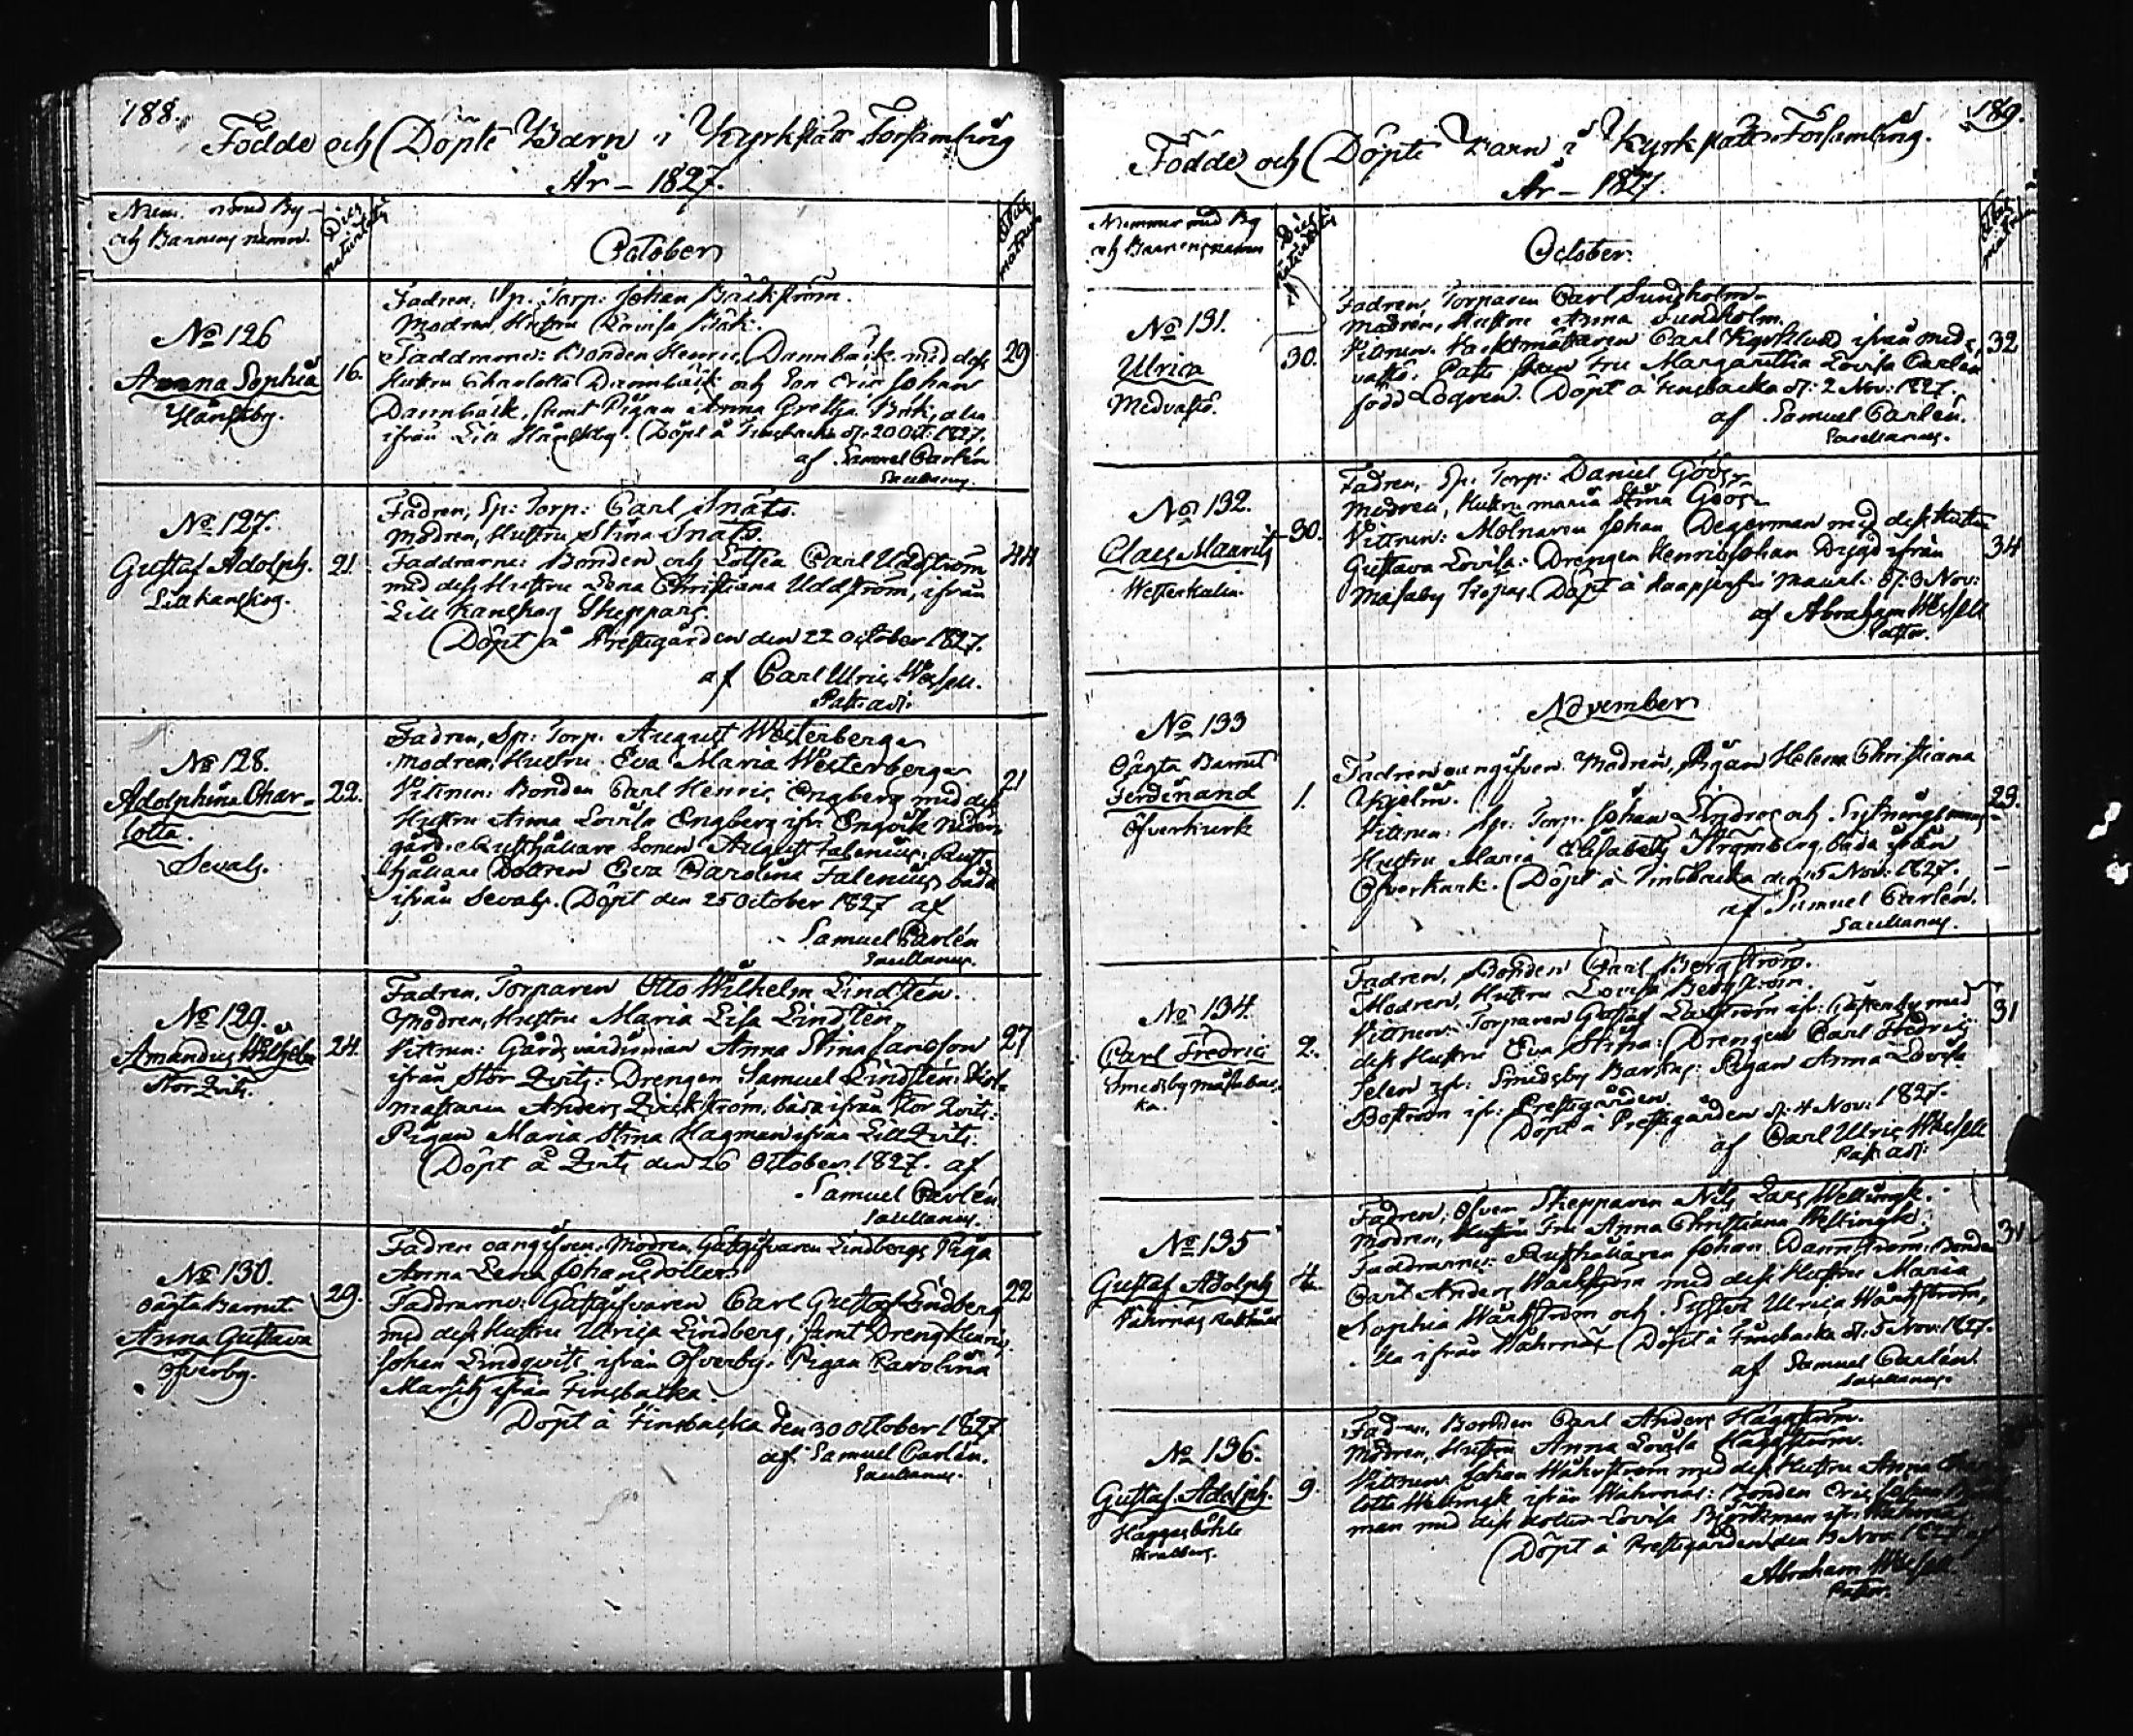 188.
Födde och Döpte Barn i Kyrkslätt Församling
År - 1827.
Num. med By
och Barnens namn.
Dies
October
No 126
Anna Sophia
Hånsby.
16.
Fadren, Sp. Torp: Johan Bäckström.
Modren, Hustru Lovisa Bäk.
Faddrarne: Bonden Henric Dannbäck med dess
Hustru Charlotta Dannbäck och Son Eric Johan
Dannbäck, samt Pigan Anna Gretha Bök, alla
ifrån Lill Hånsby. Döpt å Finsbacka d: 20 Oct: 1827.
af Samuel Carlén
Sacellanus.
29
No 127.
Gustaf Adolph.
Lillkanskog.
21.
Fadren, Sp: Torp: Carl Snåts.
Modren, Hustru Stina Snåts.
Faddrarne: Bonden och Lottsen Carl Uddström
med dess Hustru Lena Christiana Uddström, ifrån
Lill Kanskog Skeppars.
Döpt å Prestegården den 22 October 1827.
af Carl Ulric Wessell.
Past: adj:
44
No 128.
Adolphina Char-
lotta.
Sevals.
22.
Fadren, Sp: Torp: August Westerberg
Modren, Hustru Eva Maria Westerberg
Vittnen: Bonden Carl Henric Engberg med dess
Hustru Anna Lovisa Engberg ifr: Engvik
gård: Rusthållare Sonen August Falenius: Rust-
hållare Dottren Eva Carolina Falenius båda
ifrån Sevals. Döpt den 25 October 1827 af
Samuel Carlén
Sacellanus.
21
No 129.
Amandus Wilhelm
Stor Qvits.
24.
Fadren, Torparen Otto Wilhelm Lindsten.
Modren, Hustru Maria Lisa Lindsten,
Vittnen: Gårdsvärdinnan Anna Stina Jansson
ifrån Stor Qvits: Drengen Samuel Lindsten:
mästaren Anders Qvickström, båda ifrån Stor Qvits:
Pigan Maria Stina Hagman ifrån Lill Qvits.
Döpt å Qvits den 26 October 1827. af
Samuel Carlén
Sacellanus.
27
No 130.
Oägta Barnet
Anna Gustava
Öfverby.
29.
Fadren oangifven. Modren, Gästgifvaren Lindbergs Piga
Anna Lena Johansdotter.
Faddrarne: Gästgifvaren Carl Gustaf Lindberg
med dess Hustru Ulrica Lindberg, samt Dreng Henric
Johan Lindqvist ifrån Öfverby. Pigan Carolina
ifrån Finsbacka
Döpt å Finsbacka den 30 October 1827
af Samuel Carlén.
Sacellanus.
22
189.
Födde och Döpte Barn i Kyrkslätt Församling.
År - 1827.
Nummer med By
och Barnens namn
Dies
October.
No 131.
Ulrica
Medvastö.
30.
Fadren, Torparen Carl Sundholm
Modren, Hustru Anna Sundholm.
Vittnen: Carl Kyrklund ifrån Med-
vastö. Fru Margaretha Lovisa Carlén
född Logren. Döpt å Finsbacka d: 2 Nov: 1827.
af Samuel Carlén.
Sacellanus.
32
No 132.
Claes Maurits
Westerkulla
30.
Fadren, Sp: Torp: Daniel Göös
Modren, Hustru Maria Stina Göös
Vittnen: Molnaren Johan Degerman med dess Hustru
Gustava Lovisa: Drengen Henric Johan ifrån
Masaby Döpt å d: 3 Nov:
af Abraham Wessell
Pastor.
34
November
No 133
Oägta Barnet
Ferdinand
Öfverkurk
1.
Fadren oangifven. Modren, Pigan Helena Christiana
Hjelm.
Vittnen: Sp: Torp: Johan Lindros och
Hustru Maria Elisabeth Strömberg båda ifrån
Öfverkurk. Döpt å Finsbacka den 5 Nov: 1827.
af Samuel Carlén.
Sacellanus.
29.
No 134.
Carl Fredric
Smedsby
2.
Fadren, Bonden Carl Bergström.
Modren, Hustru Lovisa Bergström.
Vittnen: Torparen Gustaf med
dess Hustru Eva Stina: Drengen Carl Fredric
Smedsby: Pigan Anna Lovisa
Boström ifr: Prestegården.
Döpt å Prestegården d: 4 Nov: 1827.
af Carl Ulric Wessell
Past: adj:
31
No 135
Gustaf Adolph
4.
Fadren, Öfver Skepparen Nils Lars Wellingk.
Modren, Fru Anna Christiana Wellingk.
Faddrarne: Rusthållaren Johan Dannström: Bonden
Carl Anders Wånström med dess Hustru Maria
Sophia Wånström och Syster Ulrica Wånström,
alla ifrån Wåhrnäs Döpt å Finsbacka d: 5 Nov: 1827.
af Samuel Carlén
Sacellanus.
31
No 136.
Gustaf Adolph.
Häggesböhle
9.
Fadren, Bonden Carl Anders Häggström.
Modren, Hustru Anna Lovisa Häggström.
Vittnen: Johan med dess Hustru Anna
lotta Wellingk ifrån Wåhrnäs: Bonden Eric Johan
man med dess dotter Lovisa Björkman ifr: Wåhrnäs
Döpt å Prestegården den 13 Nov: 1827 af
Abraham Wessell
Pastor.